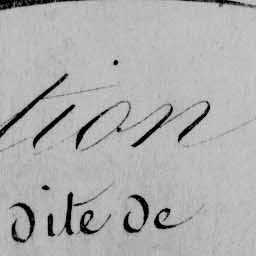 tion
dite de